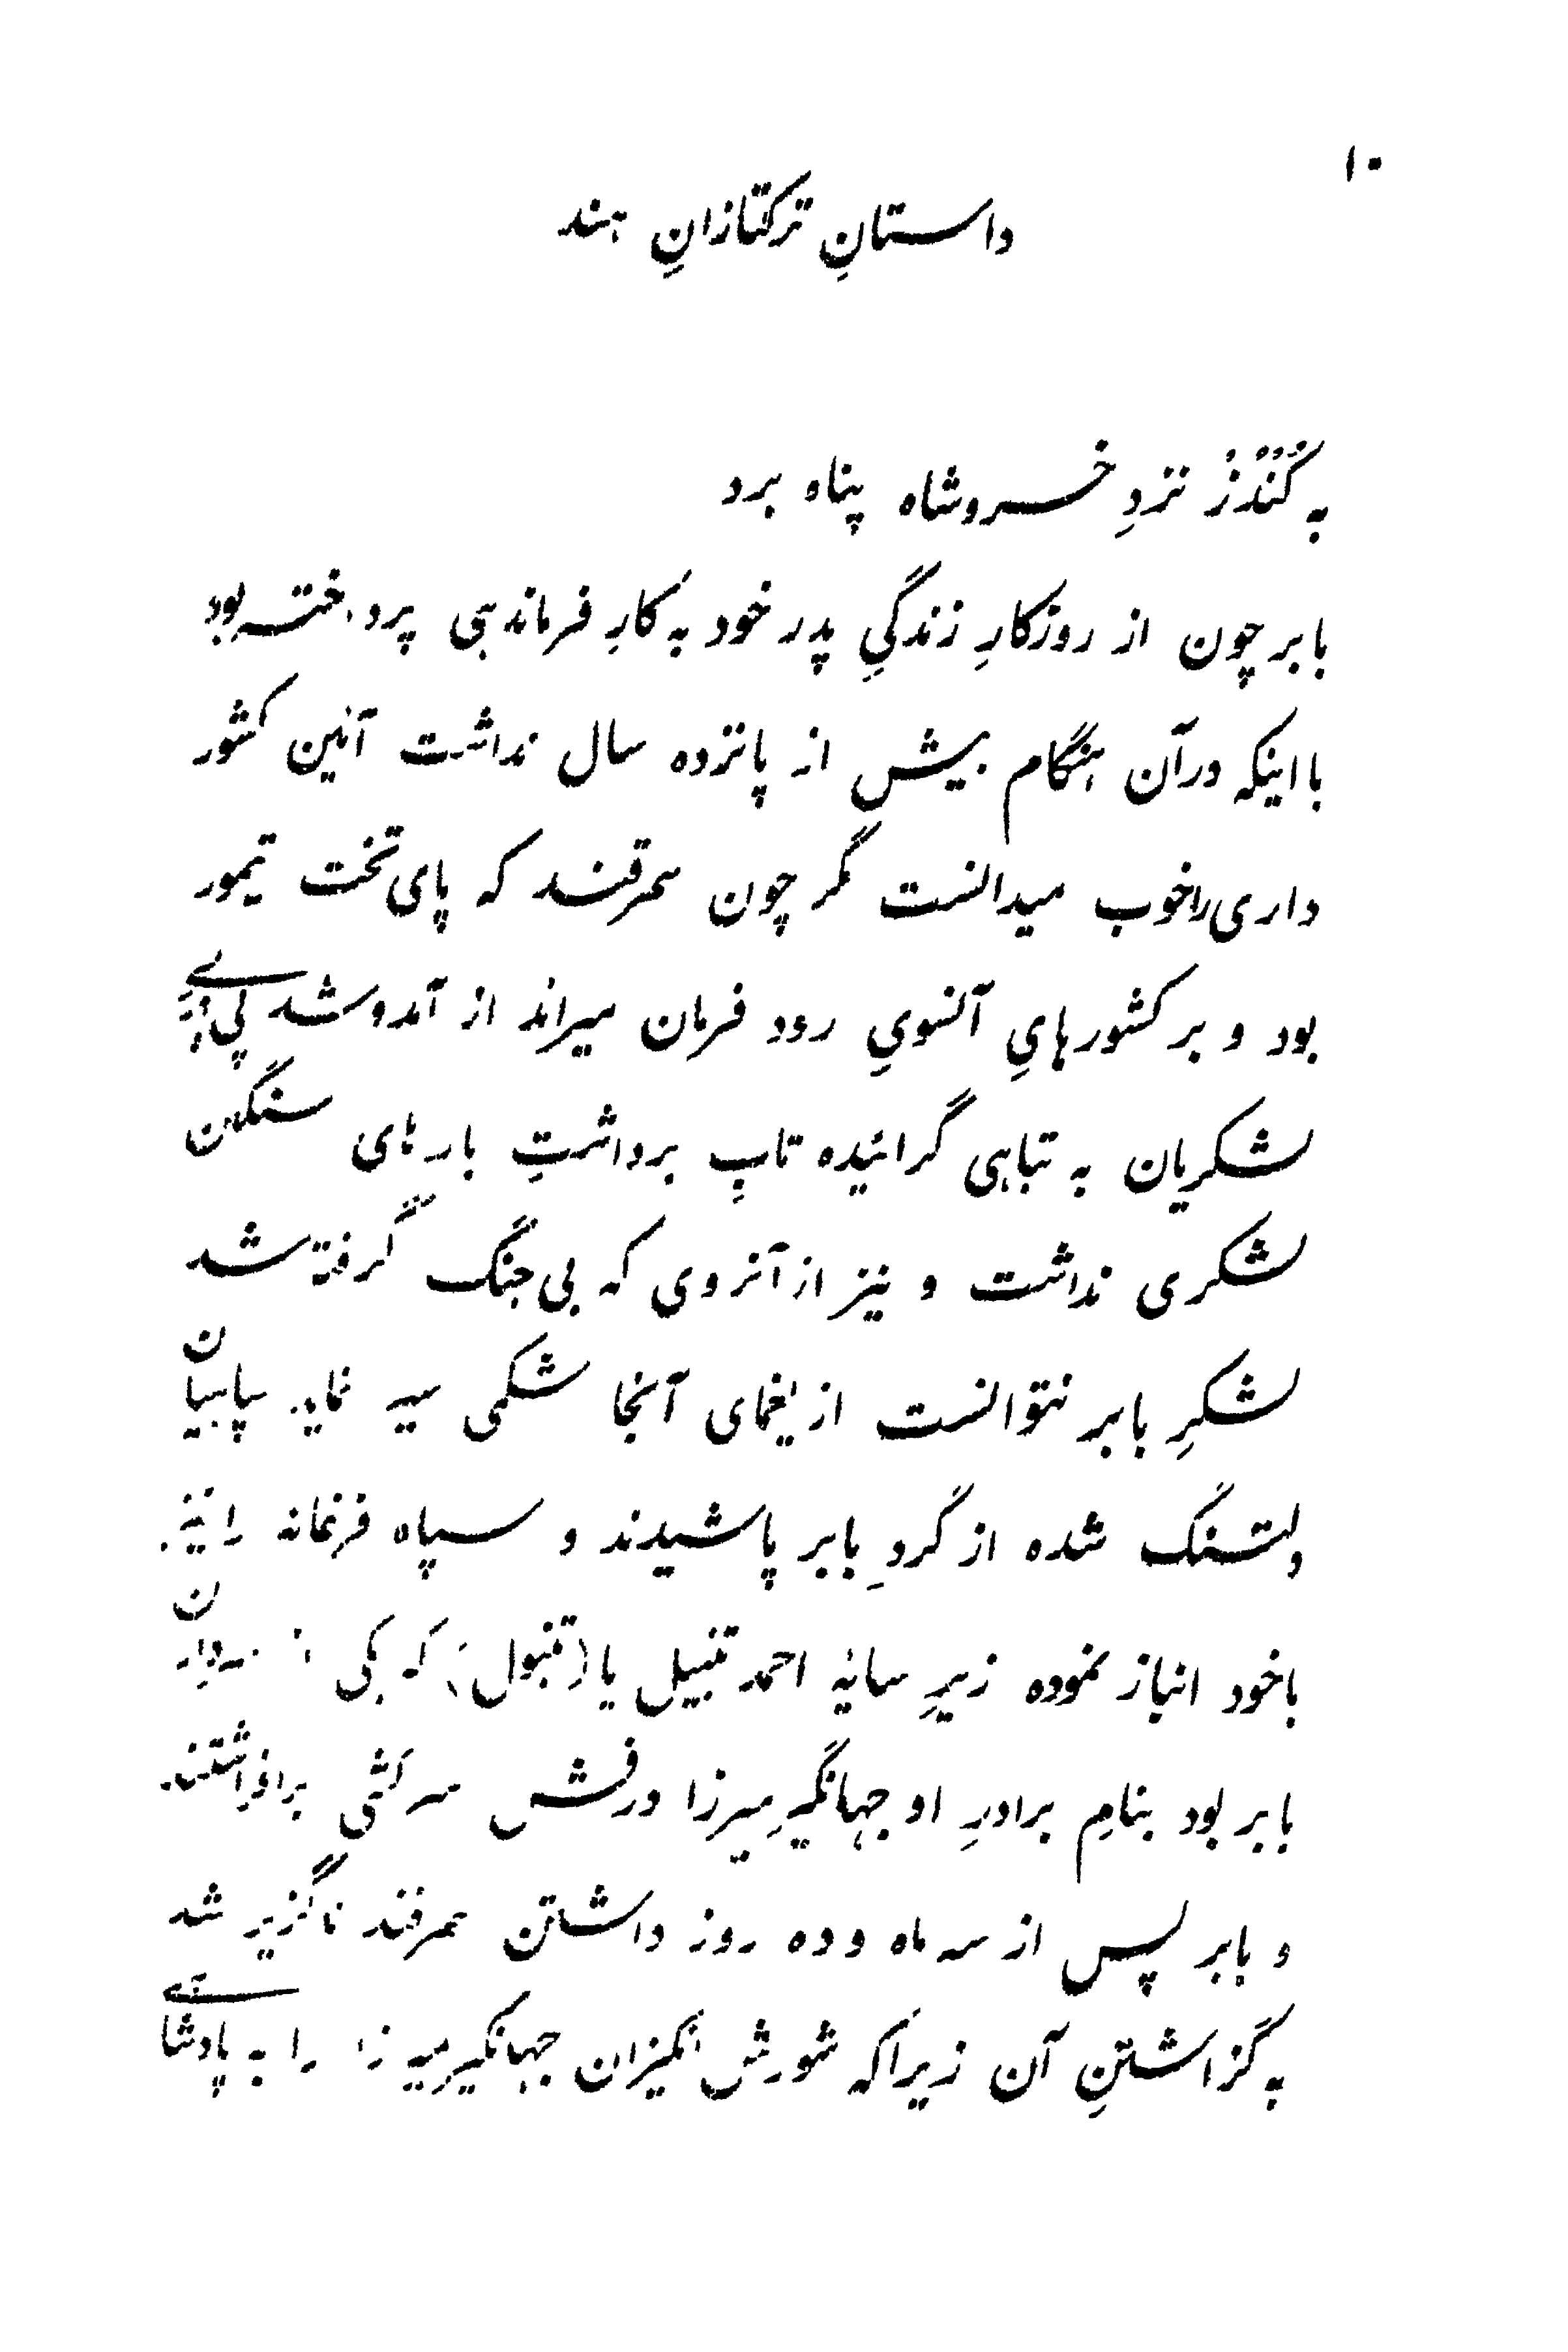 ۱۰
داستانِ ترکتازانِ هند
به کُنْدُزْ نزدِ خسروشاه پناه برد
بابر چون از روزکارِ زندگیِ پدر خود به کارِ فرماندهی پرداخته بود
با اینکه درآن هنگام بیش از پانزده سال نداشت آئین کشور
داری را خوب میدانست مگر چون سمرقند که پای تخت تیمور
بود و بر کشورهایِ آنسویِ رود فرمان میراند از آمدوشد پی در پی
لشکریان به تباهی گرائیده تابِ برداشتِ بارهای سنگین
لشکری نداشت و نیز از آنروی که بی جنگ گرفته شد
لشکرِ بابر نتوانست از یغمای آنجا شکمی سیر نماید سپاهیان
دلتنگ شده از گردِ بابر پاشیدند و سپاه فرغانه را نیز
باخود انباز نموده زیرِ سایهٔ احمد تنبیل یا (تنبول) که یکی از سردارانِ
بابر بود بنامِ برادرِ او جهانگیرِ میرزا درفش سرکشی برافراشتند
و بابر پس از سه ماه و ده روز داشتن سمرقند ناگزیر شد
به گزاشتنِ آن زیرا که شورش انگیزان جهانگیر میرزا را به پادشاهی